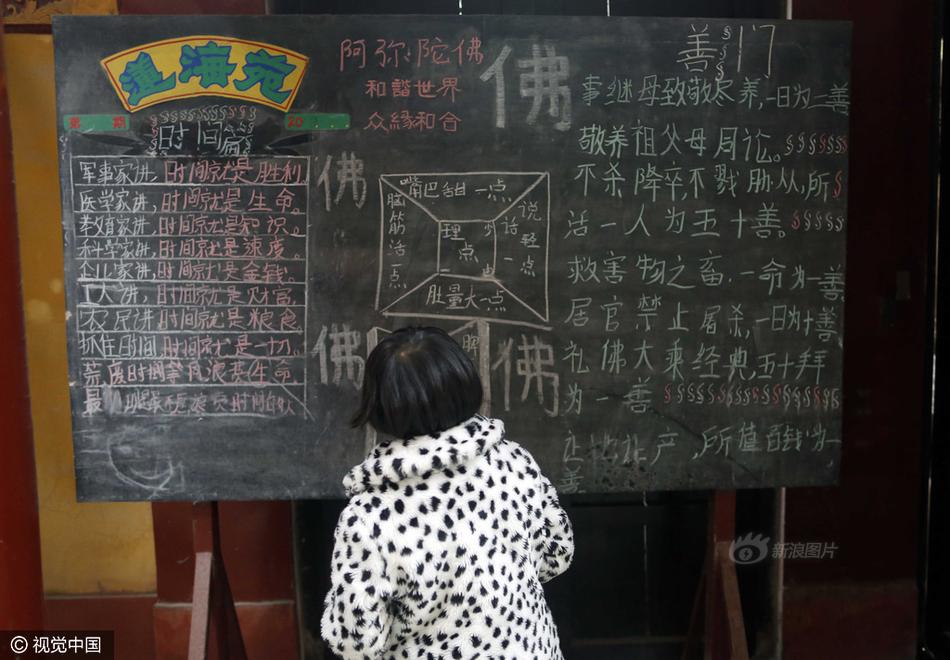 蓮海苑
第 期
20
时间篇
军事家讲,时间就是胜利
医学家讲,时间就是生命。
教育家讲,时间就是知识。
科学家讲,时间就是速度。
企业家讲,时间就是金钱。
工人讲,时间就是财富
农民讲时间就是粮食
抓住时间,时间就是一切。
荒废时间等于浪费生命
最
阿弥陀佛
和諧世界
众緣和合
佛
佛
佛
佛
嘴巴甜一点
脑筋活一点
理
点
说话轻一点
肚量大一点
善门
事继母致敬尽养,一日为一善
敬养祖父母同论。
不杀降卒,不戮胁从,所
活一人为五十善。
救害物之畜.一命为一善
居官禁止屠杀,一日为十善
礼佛大乘经典,五十拜
为一善
产,所值百钱为一
善
新浪图片
© 视觉中国